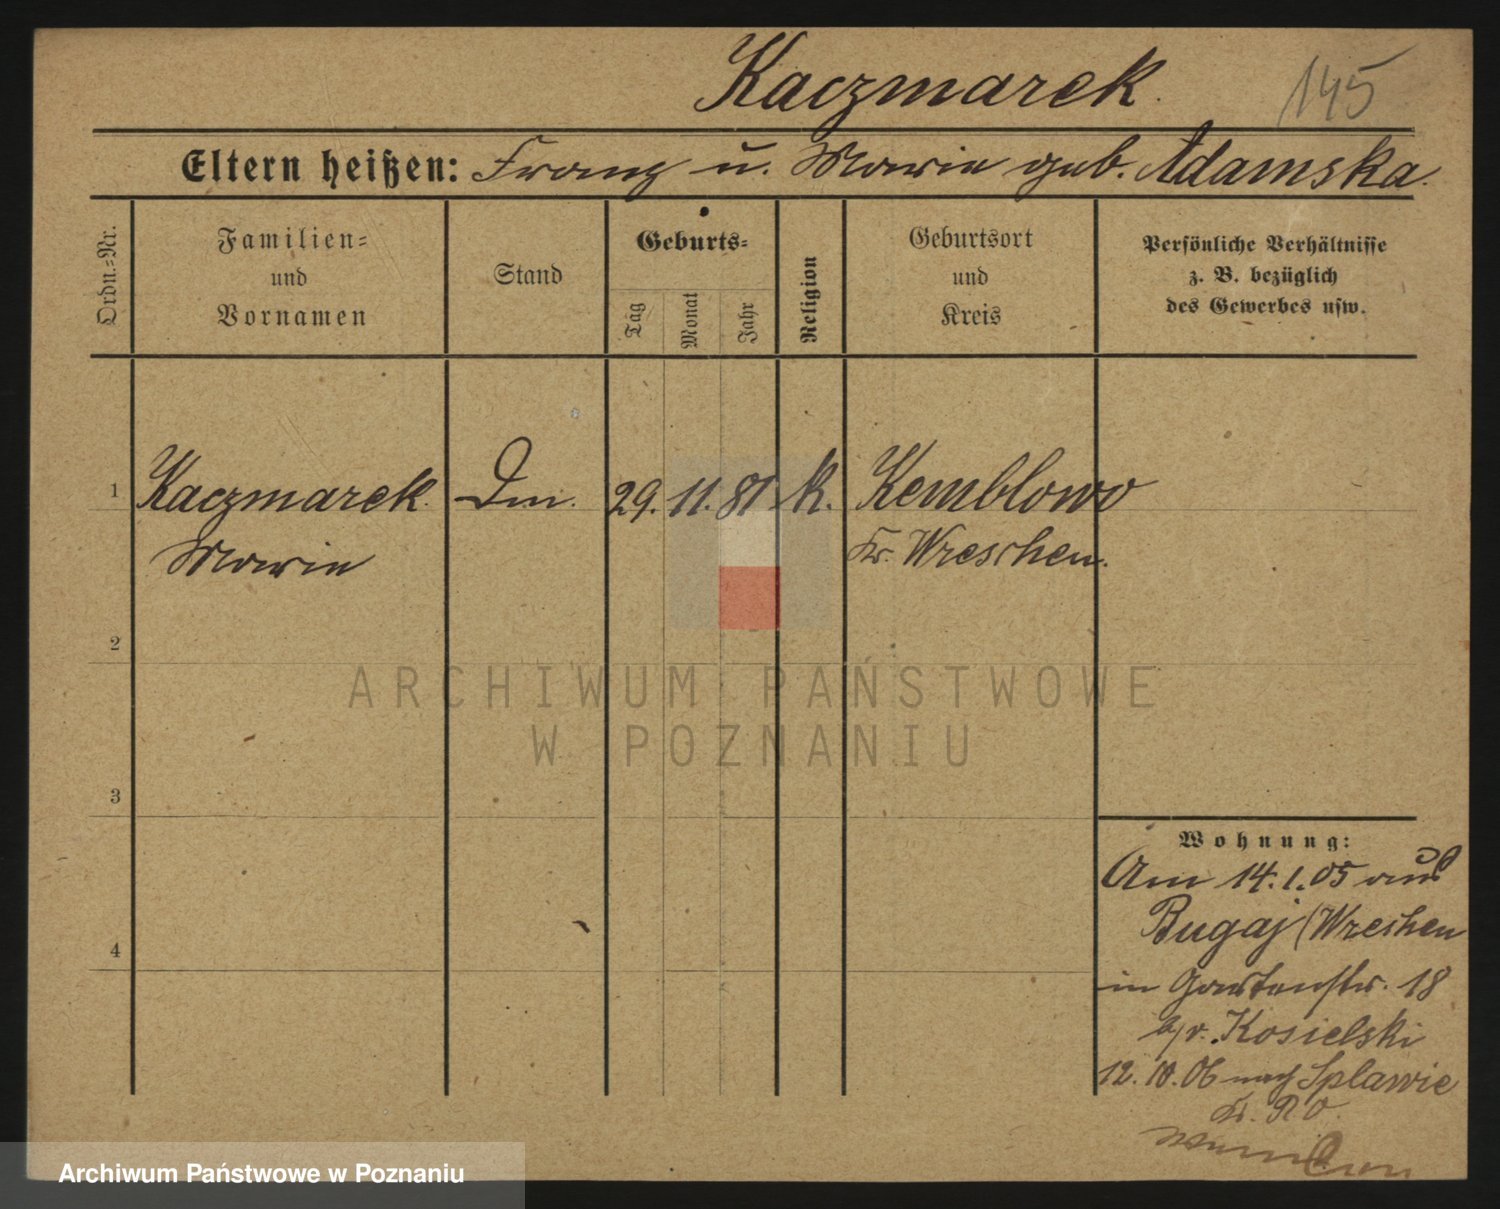 Kaczmarek. 145
Eltern heißen: Franz u. Marie geb. Adamska.
Ordn.=Nr.
Familien=
und
Vornamen
Stand
Geburts=
Tag
Monat
Jahr
Religion
Geburtsort
und
Kreis
Persönliche Verhältnisse
z. B. bezüglich
des Gewerbes usw.
1 Kaczmarek. Dm. 29. 11. 81 k. Kemblowo
Marie Kr. Wreschen.
2
3
4
Wohnung:
Am 14.1.05 aus
Bugaj (Wreschen
in Gartenstr. 18
b/v. Kosielski
12. 10. 06 nach Splawie
Kr. P. O.
ARCHIWUM PAŃSTWOWE
W POZNANIU
Archiwum Państwowe w Poznaniu